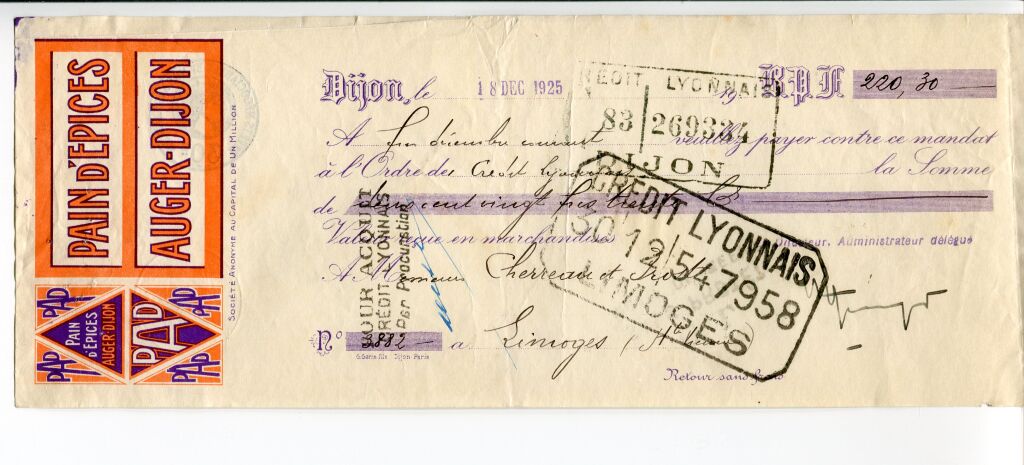 PAIN D'ÉPICES
AUGER-DIJON
PAP
PAIN
D'ÉPICES
AUGER-DIJON
PAP
PAP
PAP
PAP
PAP
SOCIÉTÉ ANONYME AU CAPITAL DE UN MILLION
Dijon, le 18 DEC 1925 19 B.P.F. 220,30
CRÉDIT LYONNAIS
83 269334
DIJON
A fin décembre courant veuillez payer contre ce mandat
à l'Ordre de Crédit Lyonnais la Somme
de deux cent vingt frs
Valeur reçue en marchandises
Directeur, Administrateur délégué
A Monsieur Cherreau et
POUR ACQUIT
CRÉDIT LYONNAIS
Par Procuration
CRÉDIT LYONNAIS
30 12 547958
LIMOGES
No 3882 a Limoges
G. Gerin fils Dijon Paris
Retour sans frais